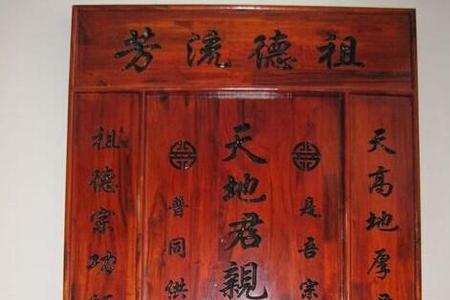 祖德流芳
天高地厚
是吾宗
天地君親
普同供
祖德宗功